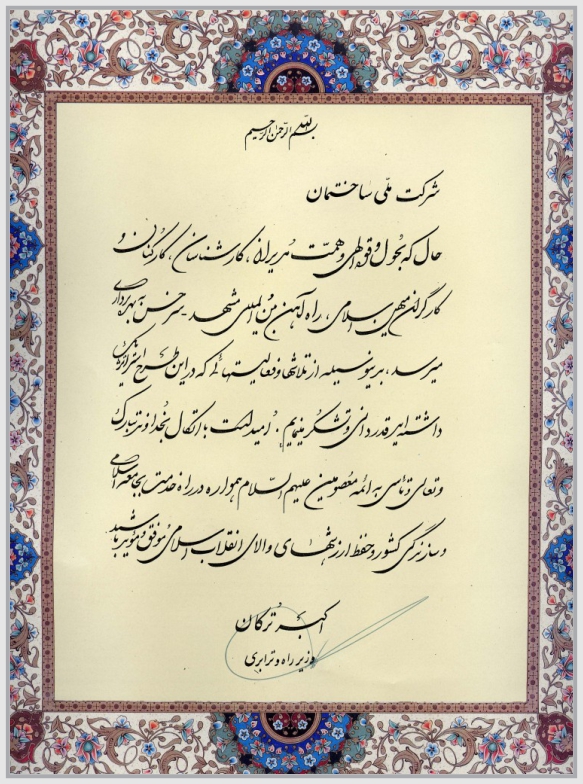 بسم الله الرحمن الرحیم
شرکت ملی ساختمان
حال که بحول و قوه الهی و همت مدیران، کارشناسان، کارکنان و
کارگران میهن اسلامی، راه آهن بین المللی مشهد - سرخس به بهره‌برداری
میرسد، بدینوسیله از تلاشها و فعالیتهائی که در این طرح
داشته‌اید قدردانی و تشکر مینمایم. امید است با اتکال بخداوند تبارک
و تعالی و تأسی به ائمه معصومین علیهم السلام همواره در راه خدمت بجامعه اسلامی
و سازندگی کشور و حفظ ارزشهای والای انقلاب اسلامی موفق و مؤید باشید
اکبر ترکان
وزیر راه و ترابری